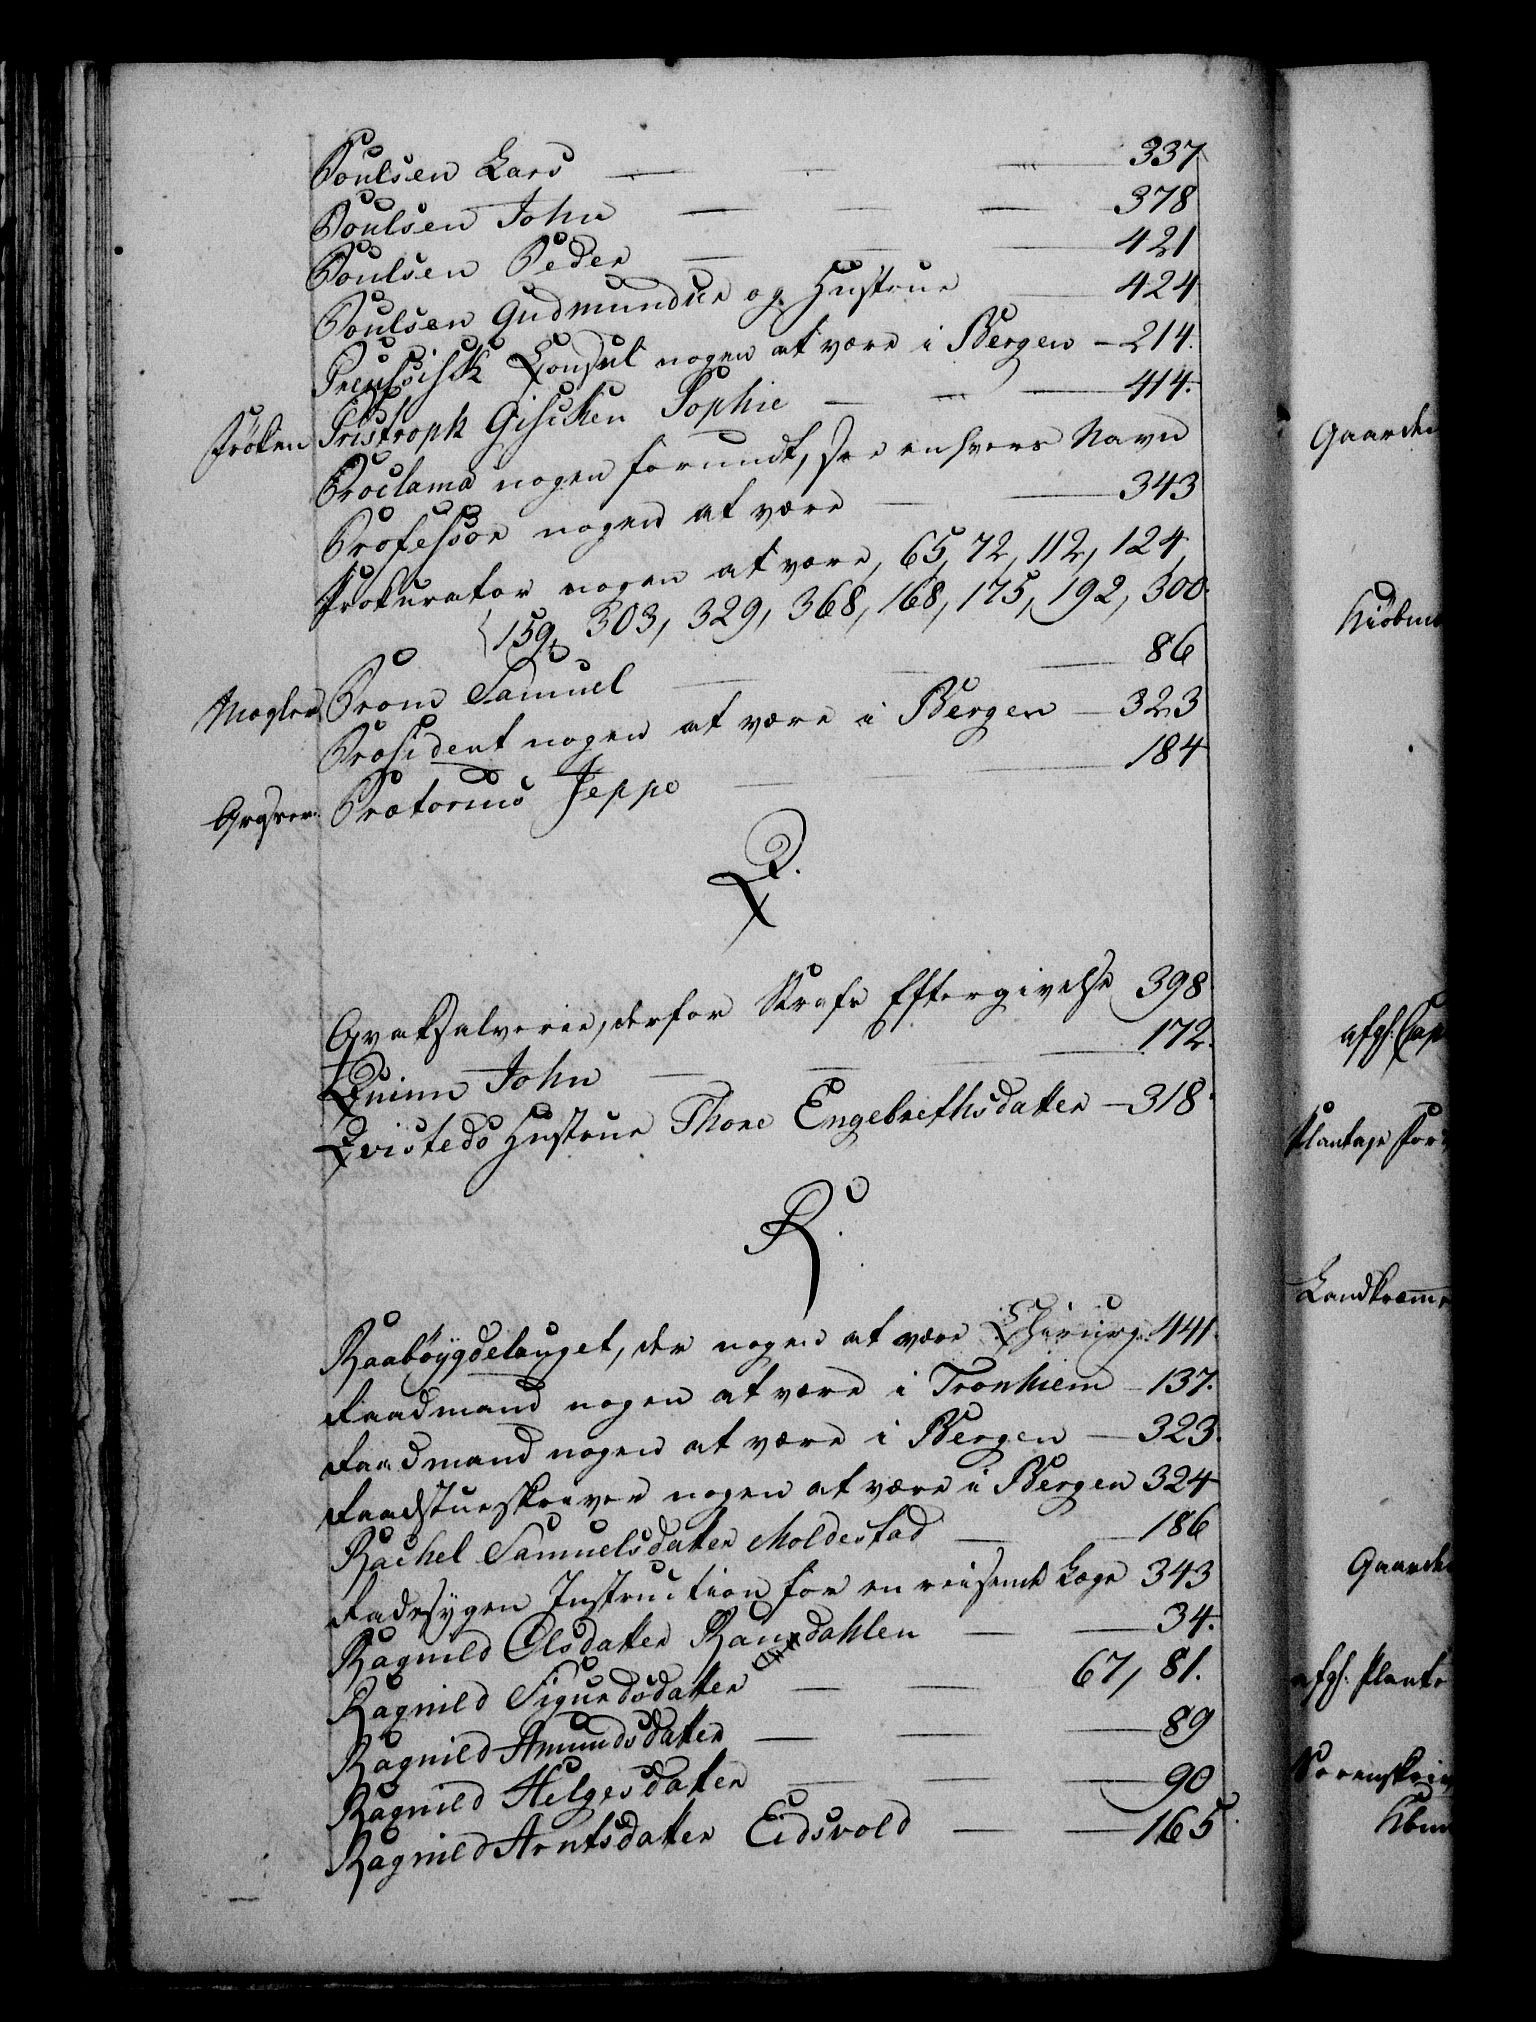 Poulsen Lars — — 337
Poulsen John — — — 378
Poulsen Peder — — — 421
Poulsen Gudmundur og Hustrue — 424
Preussisk Consul nogen at være i Bergen — 214.
Frøken Pristroph Gischen Sophie — — — 414.
Proclama nogen forundt, see enhvers Navn
Professor nogen at være — — 343
Prokurator nogen at være, 65, 72, 112, 124,
159, 303, 329, 368, 168, 175, 192, 300.
Mægler Prom Samuel — — — 86
Præsident nogen at være i Bergen — 323
Prætorius Jeppe — — — 184
Q.
Qvaksalverie, derfor Strafs Eftergivelse 398
Quinn John — — — 172.
Qvisteds Hustrue Thore Engebrethsdatter — 318.
R.
Raabøygdelauget, der nogen at være Chirurg. 441.
Raadmand nogen at være i Tronhiem — 137.
Raadmand nogen at være i Bergen — 323.
Raadstueskriver nogen at være i Bergen 324
Rachel Samuelsdatter Moldestad — — 186
Radesygen Instruction for en reisende Læge 343
Ragnild Olsdatter Ramsdahlen — — 34.
Ragnild Sigurdsdatter — — 67, 81.
Ragnild Amundsdatter — — — 89
Ragnild Helgesdatter — — — 90
Ragnild Arntsdatter Eidsvold — — 165.
Gaarde
Kiöbm
afgl. Cap
Plantage For
Landkræmm
Gaarde
afgl. Plant
Sorenskriv
Kbm